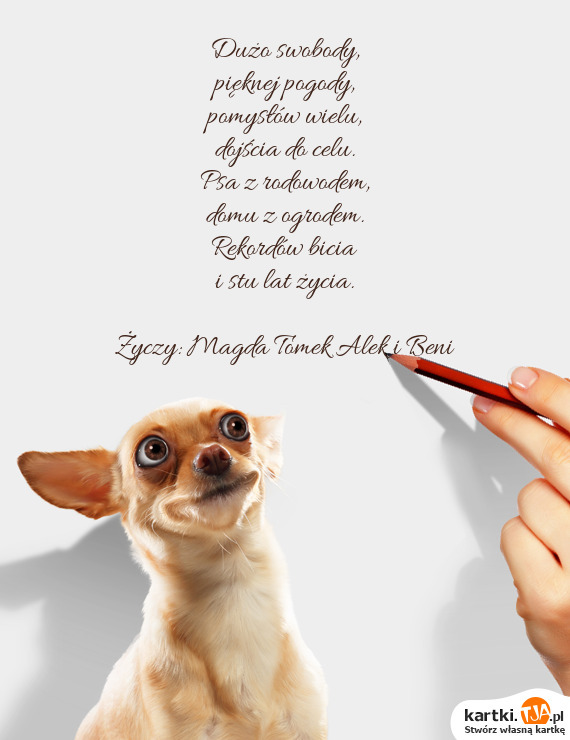 Dużo swobody,
pięknej pogody,
pomysłów wielu,
dojścia do celu.
Psa z rodowodem,
domu z ogrodem.
Rekordów bicia
i stu lat życia.
Życzy: Magda Tomek Alek i Beni
kartki.TJA.pl
Stwórz własną kartkę